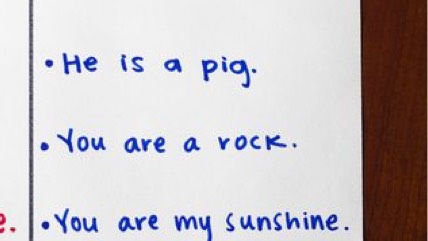 • He is a pig.
• You are a rock.
e. • You are my sunshine.